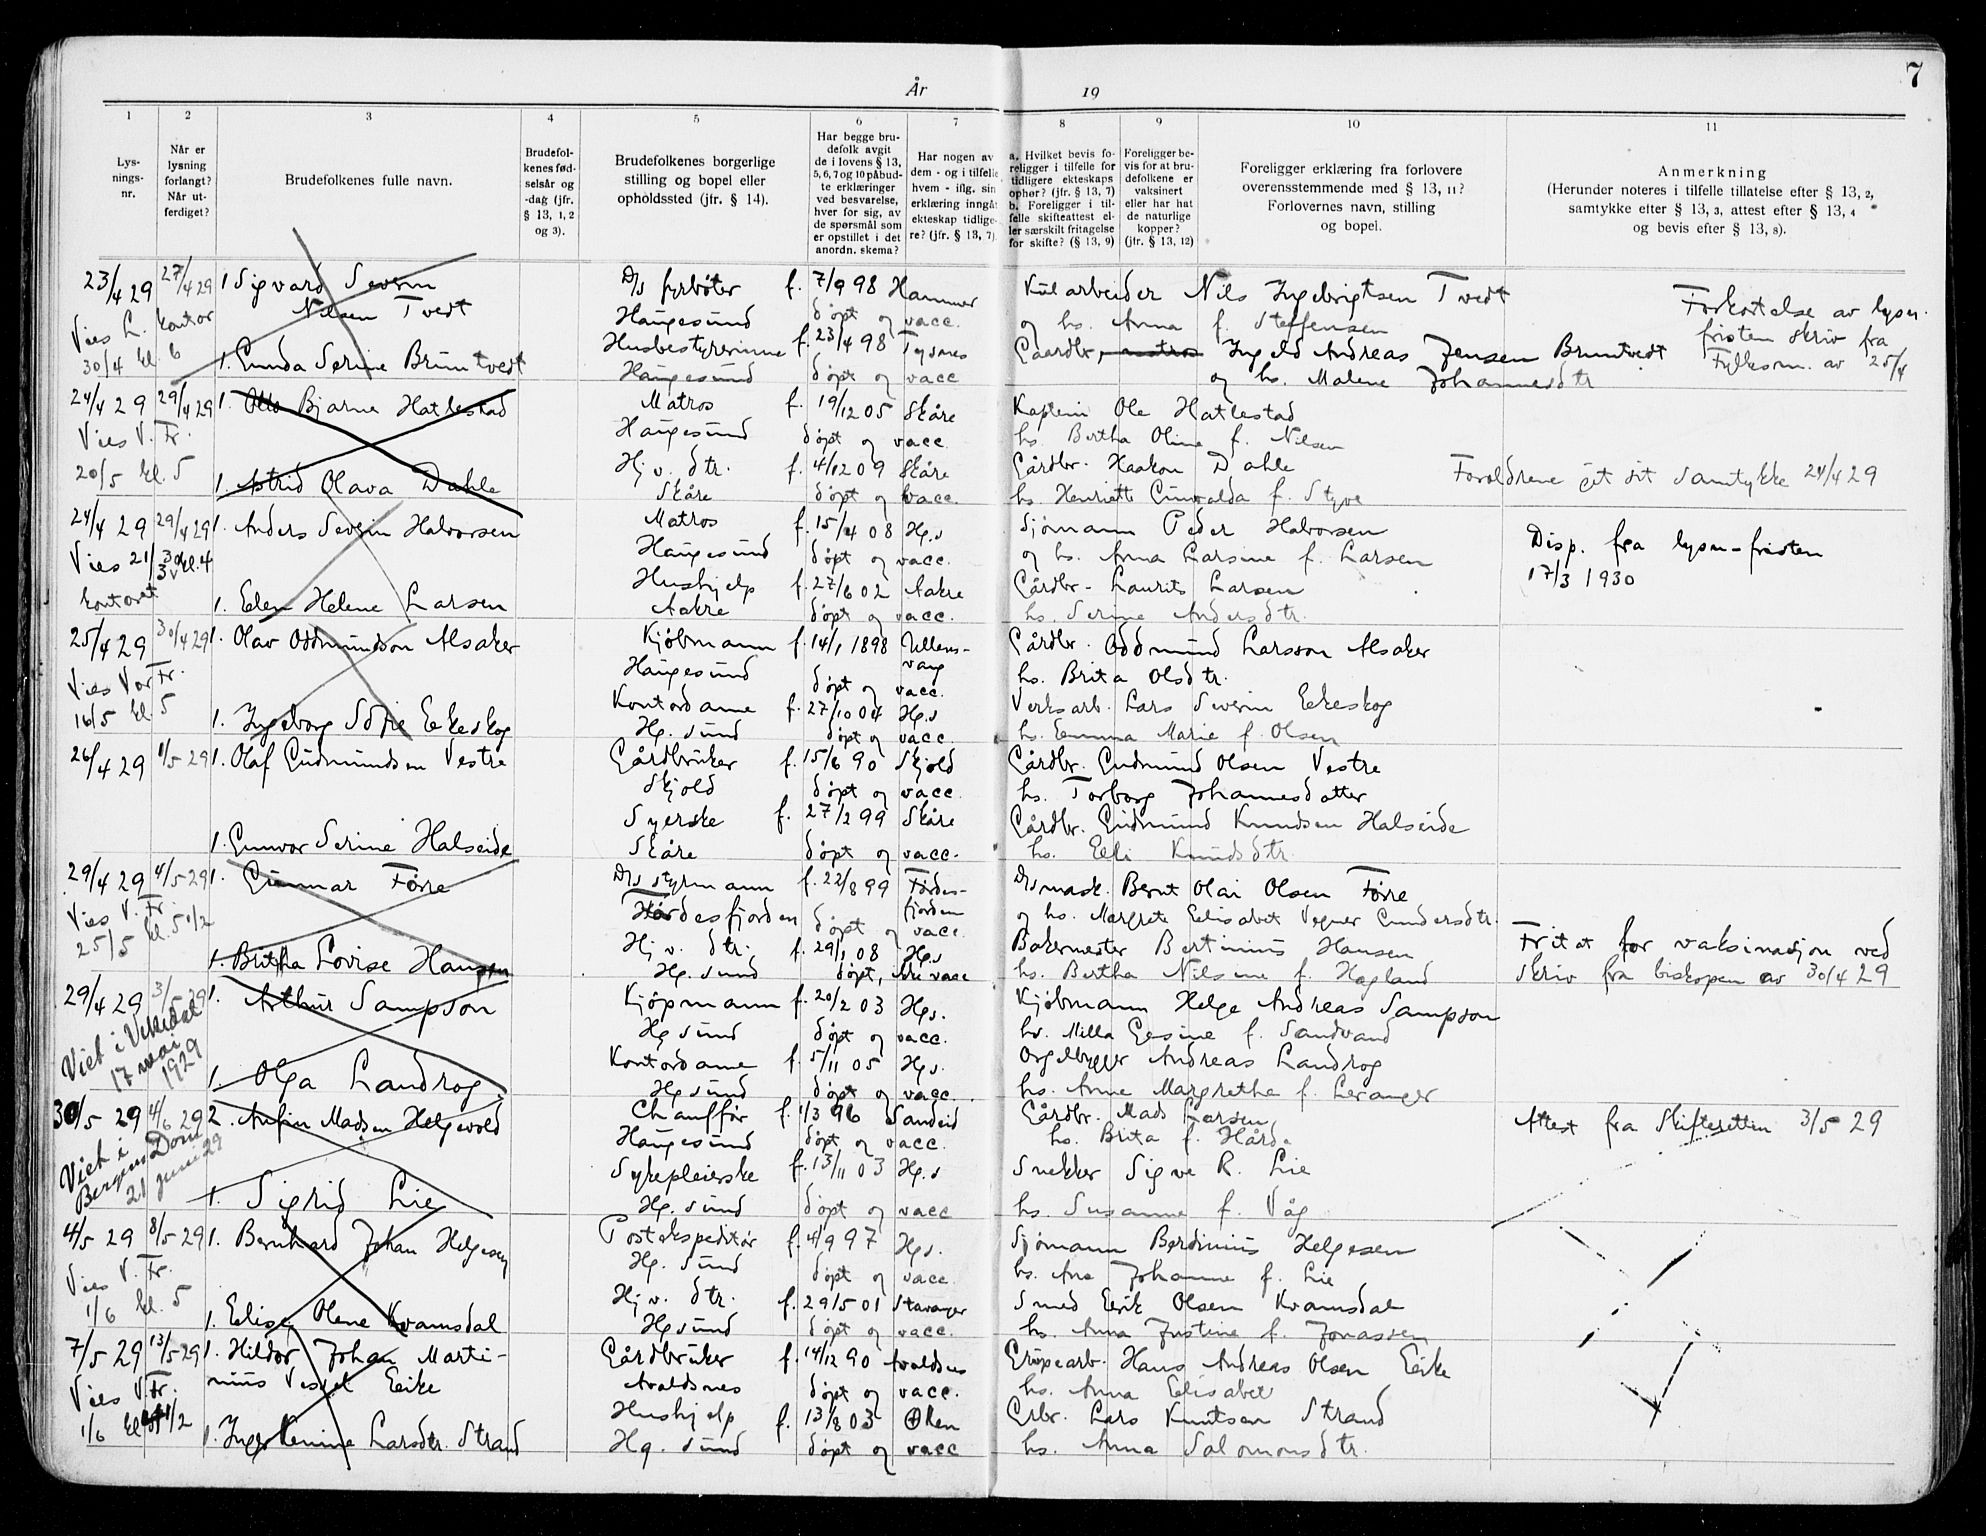 7
År 19
1 2 3 4 5 6 7 8 9 10 11
Lys-
nings-
nr.
Når er
lysning
forlangt?
Når ut-
ferdiget?
Brudefolkenes fulle navn.
Brudefol-
kenes fød-
selsår og
-dag (jfr.
§ 13, 1, 2
og 3).
Brudefolkenes borgerlige
stilling og bopel eller
opholdssted (jfr. § 14).
Har begge bru-
defolk avgit
de i lovens § 13,
5, 6, 7 og 10 påbud-
te erklæringer
ved besvarelse,
hver for sig, av
de spørsmål som
er opstillet i det
anordn. skema?
Har nogen av
dem - og i tilfelle
hvem - iflg. sin
erklæring inngåt
ekteskap tidlige-
re? (jfr. § 13, 7).
a. Hvilket bevis fo-
religger i tilfelle for
tidligere ekteskaps
ophør? (jfr. § 13, 7)
b. Foreligger i til-
felle skifteattest el-
ler særskilt fritagelse
for skifte? (§ 13, 9)
Foreligger be-
vis for at bru-
defolkene er
vaksinert
eller har hat
de naturlige
kopper?
(jfr. § 13, 12)
Foreligger erklæring fra forlovere
overensstemmende med § 13, 11?
Forlovernes navn, stilling
og bopel.
Anmerkning
(Herunder noteres i tilfelle tillatelse efter § 13, 2,
samtykke efter § 13, 3, attest efter § 13, 4
og bevis efter § 13, 8).
23/4 29 27/4 29 1 Sigvard Severin D/s fyrbøter f. 7/9 98 Hammer Kularbeider Nils Ingebrigtsen Tvedt Forkortelse av lysn.
Nilsen Tvedt Haugesund døpt og vacc. og hs. Anna f. Steffensen fristen skriv fra
Vies L. kontor
30/4 kl. 6 1. Gunda Serine Bruntvedt Husbestyrerinne f. 23/4 98 Tysnes Gaardbr. Andreas Jensen Bruntvedt Fylkesm. av 25/4
Haugesund døpt og vacc og hs. Malene Johannesdtr
24/4 29 29/4 29 1. Otto Bjarne Hatlestad Matros f. 19/12 05 Skåre Kaptein Ole Hatlestad
Vies V. Fr. Haugesund døpt og vacc. hs. Bertha Oline f. Nilsen
20/5 kl. 5 Hj v. dtr. f. 4/12 09 Skåre Gårdbr. Haakon Dahle Foreldrene git sit samtykke 24/4 29
1. Astrid Olava Dahle Skåre døpt og vacc. hs. Henriette f. Styve
24/4 29 29/4 29 1. Anders Severin Halvorsen Matros f. 15/4 08 Hg.s Sjømann Peder Halvorsen Disp. fra lysn-fristen
Vies 21/3 30 kl. 4 Haugesund døpt og vacc. og hs. Anna Larsine f. Larsen 17/3 1930
kontoret Hushjelp f. 27/6 02 Aakre Gårdbr. Laurits Larsen
1. Elen Helene Larsen Aakre døpt og vacc. hs. Serine Andersdtr.
25/4 29 30/4 29 1. Olav Oddmundson Alsaker Kjøbmann f. 14/1 1898 Ullens-
vang Gårdbr. Oddmund Larsson Alsaker
Vies Vor Fr. Haugesund døpt og vacc. hs. Brita Olsdtr.
16/5 kl. 5 Kontordame f. 27/10 04 Hg.s Verksarb. Lars Severin Eekeskog
1. Ingeborg Sofie Eekeskog Hg. sund døpt og vacc. hs. Emma Marie f. Olsen
26/4 29 1/5 29 1. Olaf Gudmundsen Vestre Gårdbruker f. 15/6 90 Skjold Gårdbr. Gudmund Olsen Vestre
Skjold døpt og vacc. hs. Torborg Johannesdatter
Syerske f. 27/2 99 Skåre Gårdbr. Gudmund Knudsen Halseide
1. Gunvor Serine Halseide Skåre døpt og vacc. hs. Elli Knudsdtr.
29/4 29 4/5 29 1. Gunnar Førre D/s styrmann f. 22/8 99 Førdes-
fjorden D/s mask. Bernt Olai Olsen Førre
Vies V. Fr. Førdesfjorden døpt og vacc. og hs. Margrete Elisabet Gundersdtr.
25/5 kl. 5 1/2 Hj v. dtr. f. 29/1 08 Hg.s Bakermester Bertinius Hansen Fritat for vaksinasjon ved
1. Britha Lovise Hansen Hg. sund døpt, ikke vacc hs. Bertha Nilsine f. Hogland skriv fra biskopen av 30/4 29
29/4 29 3/5 29 1. Arthur Sampson Kjøpmann f. 20/2 03 Hg.s. Kjøbmann Helge Andreas Sampson
Viet i Vikedal Hg sund døpt og vacc. hs. Milla Gesine f. Sandvand
17 mai 1929 Kontordame f. 5/11 05 Hg.s. Orgelbygger Andreas Landrog
1. Olga Landrog Hg sund døpt og vacc. hs. Anne Margrethe f. Leranger
30/5 29 4/6 29 2. Anfin Madsen Helgevold Chauffør f. 1/3 96 Sandeid Gårdbr. Mads Larsen Attest fra Skifteretten 3/5 29
Viet i Haugesund døpt og vacc. hs. Brita f. Hårda
Bergens Dom Sykepleierske f. 13/11 03 Hg.s Snekker Sigve R. Lie
21 juni 29 1. Sigrid Lie Hg. sund døpt og vacc hs. Susanne f. Våg
4/5 29 8/5 29 1. Bernhard Johan Helgesen Postekspeditør f. 4/9 97 Hg.s. Sjømann Berdinius Helgesen
Vies V. Fr. Hg. sund døpt og vacc. hs. Ane Johanne f. Lie
1/6 kl. 5 Hj v. dtr. f. 29/5 01 Stavanger Smed Eerik Olsen Kvamsdal
1. Elise Olene Kvamsdal Hg sund døpt og vacc. hs. Anna Justine f. Jonassen
7/5 29 13/5 29 1. Hildor Johan Marti- Gårdbruker f. 14/12 90 Avaldsnes Grubearb. Hans Andreas Olsen Eeike
nius Eeike Avaldsnes døpt og vacc. hs. Anna Elisabet
Vies V. Fr. Hushjelp f. 13/8 03 Ølen Grbr. Lars Knutsen Strand
1/6 kl 1/2 1. Inger Larsdtr. Strand Hg. sund døpt og vacc hs. Anna Salomonsdtr.